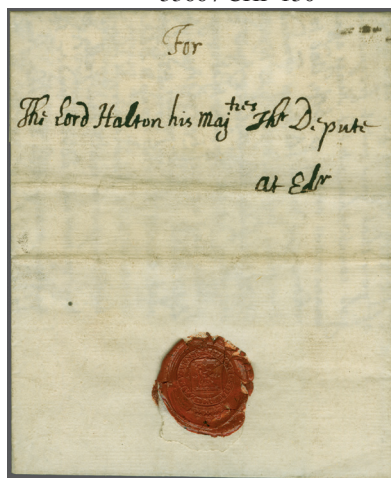 For
The Lord Halton his Maj^ties Thr Depute
at Edr